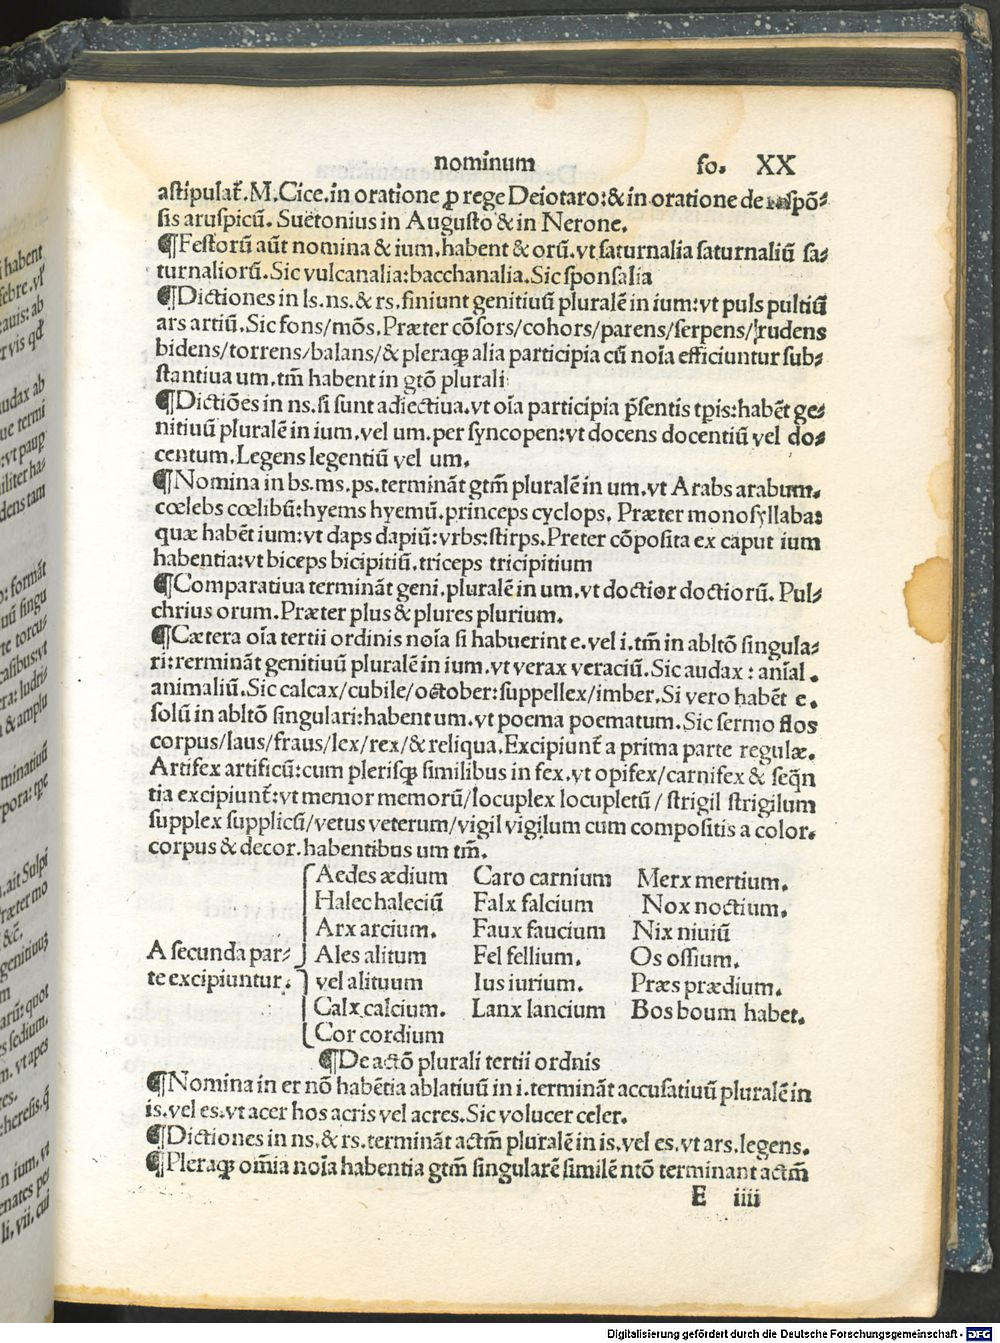 nominum fo. XX
astipulat᷑. M. Cice. in oratione ꝓ rege Deiotaro: & in oratione de respõ-
sis aruspicũ. Suetonius in Augusto & in Nerone.
¶Festorũ aũt nomina & ium. habent & orũ. vt saturnalia saturnaliũ sa-
turnaliorũ. Sic vulcanalia: bacchanalia. Sic sponsalia
¶Dictiones in ls. ns. & rs. finiunt genitiuũ pluralẽ in ium: vt puls pultiũ
ars artiũ. Sic fons/mõs. Præter cõsors/cohors/parens/serpens/rudens
bidens/torrens/balans/& pleraqꝫ alia participia cũ noĩa efficiuntur sub-
stantiua um. tm̃ habent in gtõ plurali
¶Dictiões in ns. si sunt adiectiua. vt oĩa participia p̃sentis tp̃is: habẽt ge-
nitiuũ pluralẽ in ium. vel um. per syncopen: vt docens docentiũ vel do-
centum. Legens legentiũ vel um.
¶Nomina in bs. ms. ps. terminãt gtm̃ pluralẽ in um. vt Arabs arabum.
cœlebs cœlibũ: hyems hyemũ. princeps cyclops. Præter monosyllaba:
quæ habẽt ium: vt daps dapiũ: vrbs: stirps. Preter cõposita ex caput ium
habentia: vt biceps bicipitiũ. triceps tricipitium
¶Comparatiua terminãt geni. pluralẽ in um. vt doctior doctiorũ. Pul-
chrius orum. Præter plus & plures plurium.
¶Cætera oĩa tertii ordinis noĩa si habuerint e. vel i. tm̃ in abltõ singula-
ri: rerminãt genitiuũ pluralẽ in ium. vt verax veraciũ. Sic audax: anĩal.
animaliũ. Sic calcax/cubile/october: suppellex/imber. Si vero habẽt e.
solũ in abltõ singulari: habent um. vt poema poematum. Sic sermo flos
corpus/laus/fraus/lex/rex/& reliqua. Excipiunt᷑ a prima parte regulæ.
Artifex artificũ: cum plerisqꝫ similibus in fex. vt opifex/carnifex & seq̃n
tia excipiunt᷑: vt memor memorũ/locuplex locupletũ/ strigil strigilum
supplex supplicũ/vetus veterum/vigil vigilum cum compositis a color.
corpus & decor. habentibus um tm̃.
Aedes ædium Caro carnium Merx mertium.
Halec haleciũ Falx falcium Nox noctium.
Arx arcium. Faux faucium Nix niuiũ
A secunda par- Ales alitum Fel fellium. Os ossium.
te excipiuntur. vel alituum Ius iurium. Præs prædium.
Calx calcium. Lanx lancium Bos boum habet.
Cor cordium
¶De actõ plurali tertii ordnis
¶Nomina in er nõ habẽtia ablatiuũ in i. terminãt accusatiuũ pluralẽ in
is. vel es. vt acer hos acris vel acres. Sic volucer celer.
¶Dictiones in ns. & rs. terminãt actm̃ pluralẽ in is. vel es. vt ars. legens.
¶Pleraqꝫ om̃ia noĩa habentia gtm̃ singularẽ similẽ ntõ terminant actm̃
E iiii
Digitalisierung gefördert durch die Deutsche Forschungsgemeinschaft - DFG